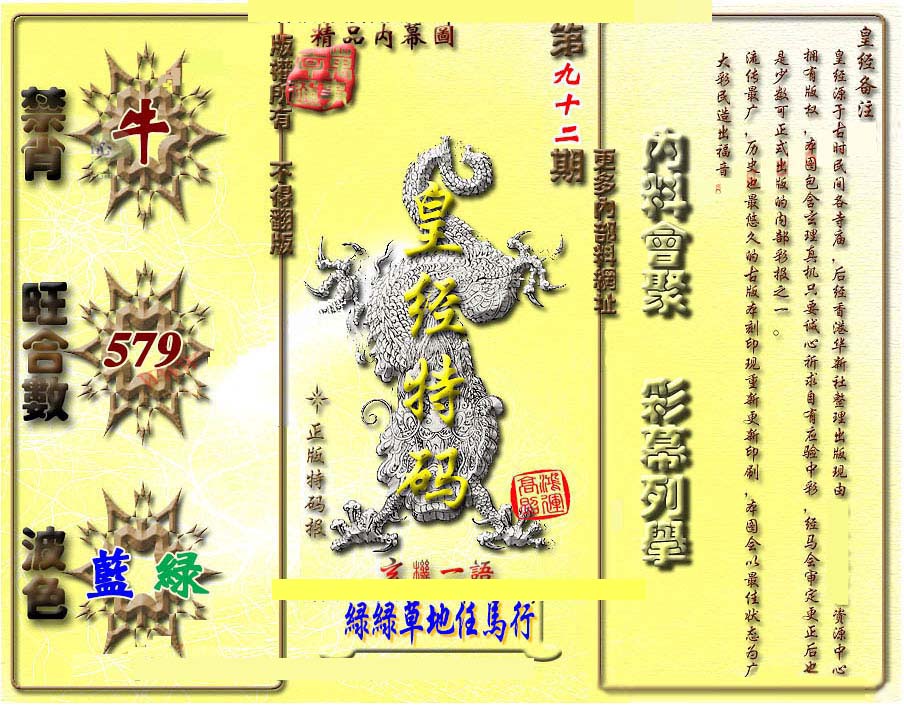 皇经备注
皇经源于古时民间各寺庙，后经香港华新社整理出版现由
资源中心
拥有版权，本图包含玄理真机只要诚心祈求自有应验中彩，经马会审定更正后也
是少数可正式出版的内部彩报之一。
流传最广，历史也最悠久的古版本刻印现重新更新印刷，本图会以最佳状态为广
大彩民造出福音
內料會聚
彩幕列舉
更多內部料網址
第九十二期
精品内幕圖
版權所有 不得翻版
皇经特码
正版特码报
鴻運高照
玄機一語
緑緑草地任馬行
禁肖
牛
旺合數
579
波色
藍 緑